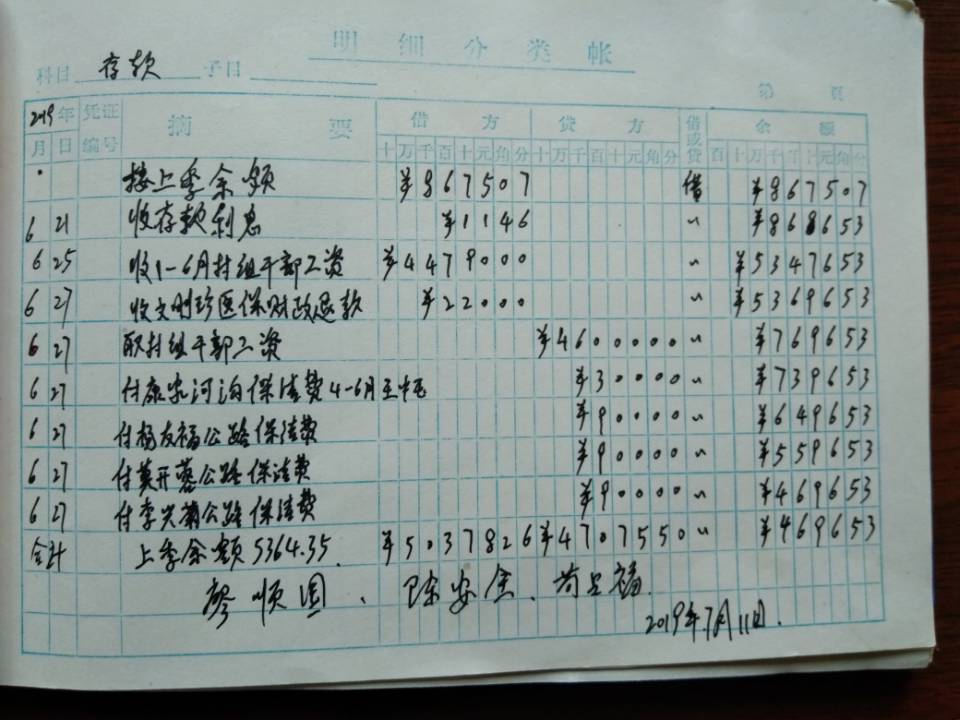 明细分类帐
科目 存款 子目
第 页
2019年 凭证 摘要 借方 贷方 借或贷 余额
月 日 编号 十万千百十元角分 十万千百十元角分 百十万千百十元角分
接上季余额 ¥867507 借 ¥867507
6 21 收存款利息 ¥1146 〃 ¥868653
6 25 收1-6月村组干部工资 ¥4479000 〃 ¥5347653
6 27 收文明珍医保财政退款 ¥22000 〃 ¥5369653
6 27 取村组干部工资 ¥4600000 〃 ¥769653
6 27 付康家河泊保洁费4-6月 ¥30000 〃 ¥739653
6 27 付杨友福公路保洁费 ¥90000 〃 ¥649653
6 27 付莫开蓉公路保洁费 ¥90000 〃 ¥559653
6 27 付李兴菊公路保洁费 ¥90000 〃 ¥469653
合计 上季余额5364.35. ¥5037826 ¥4707550 〃 ¥469653
廖顺国、陈安全、
2019年7月11日.